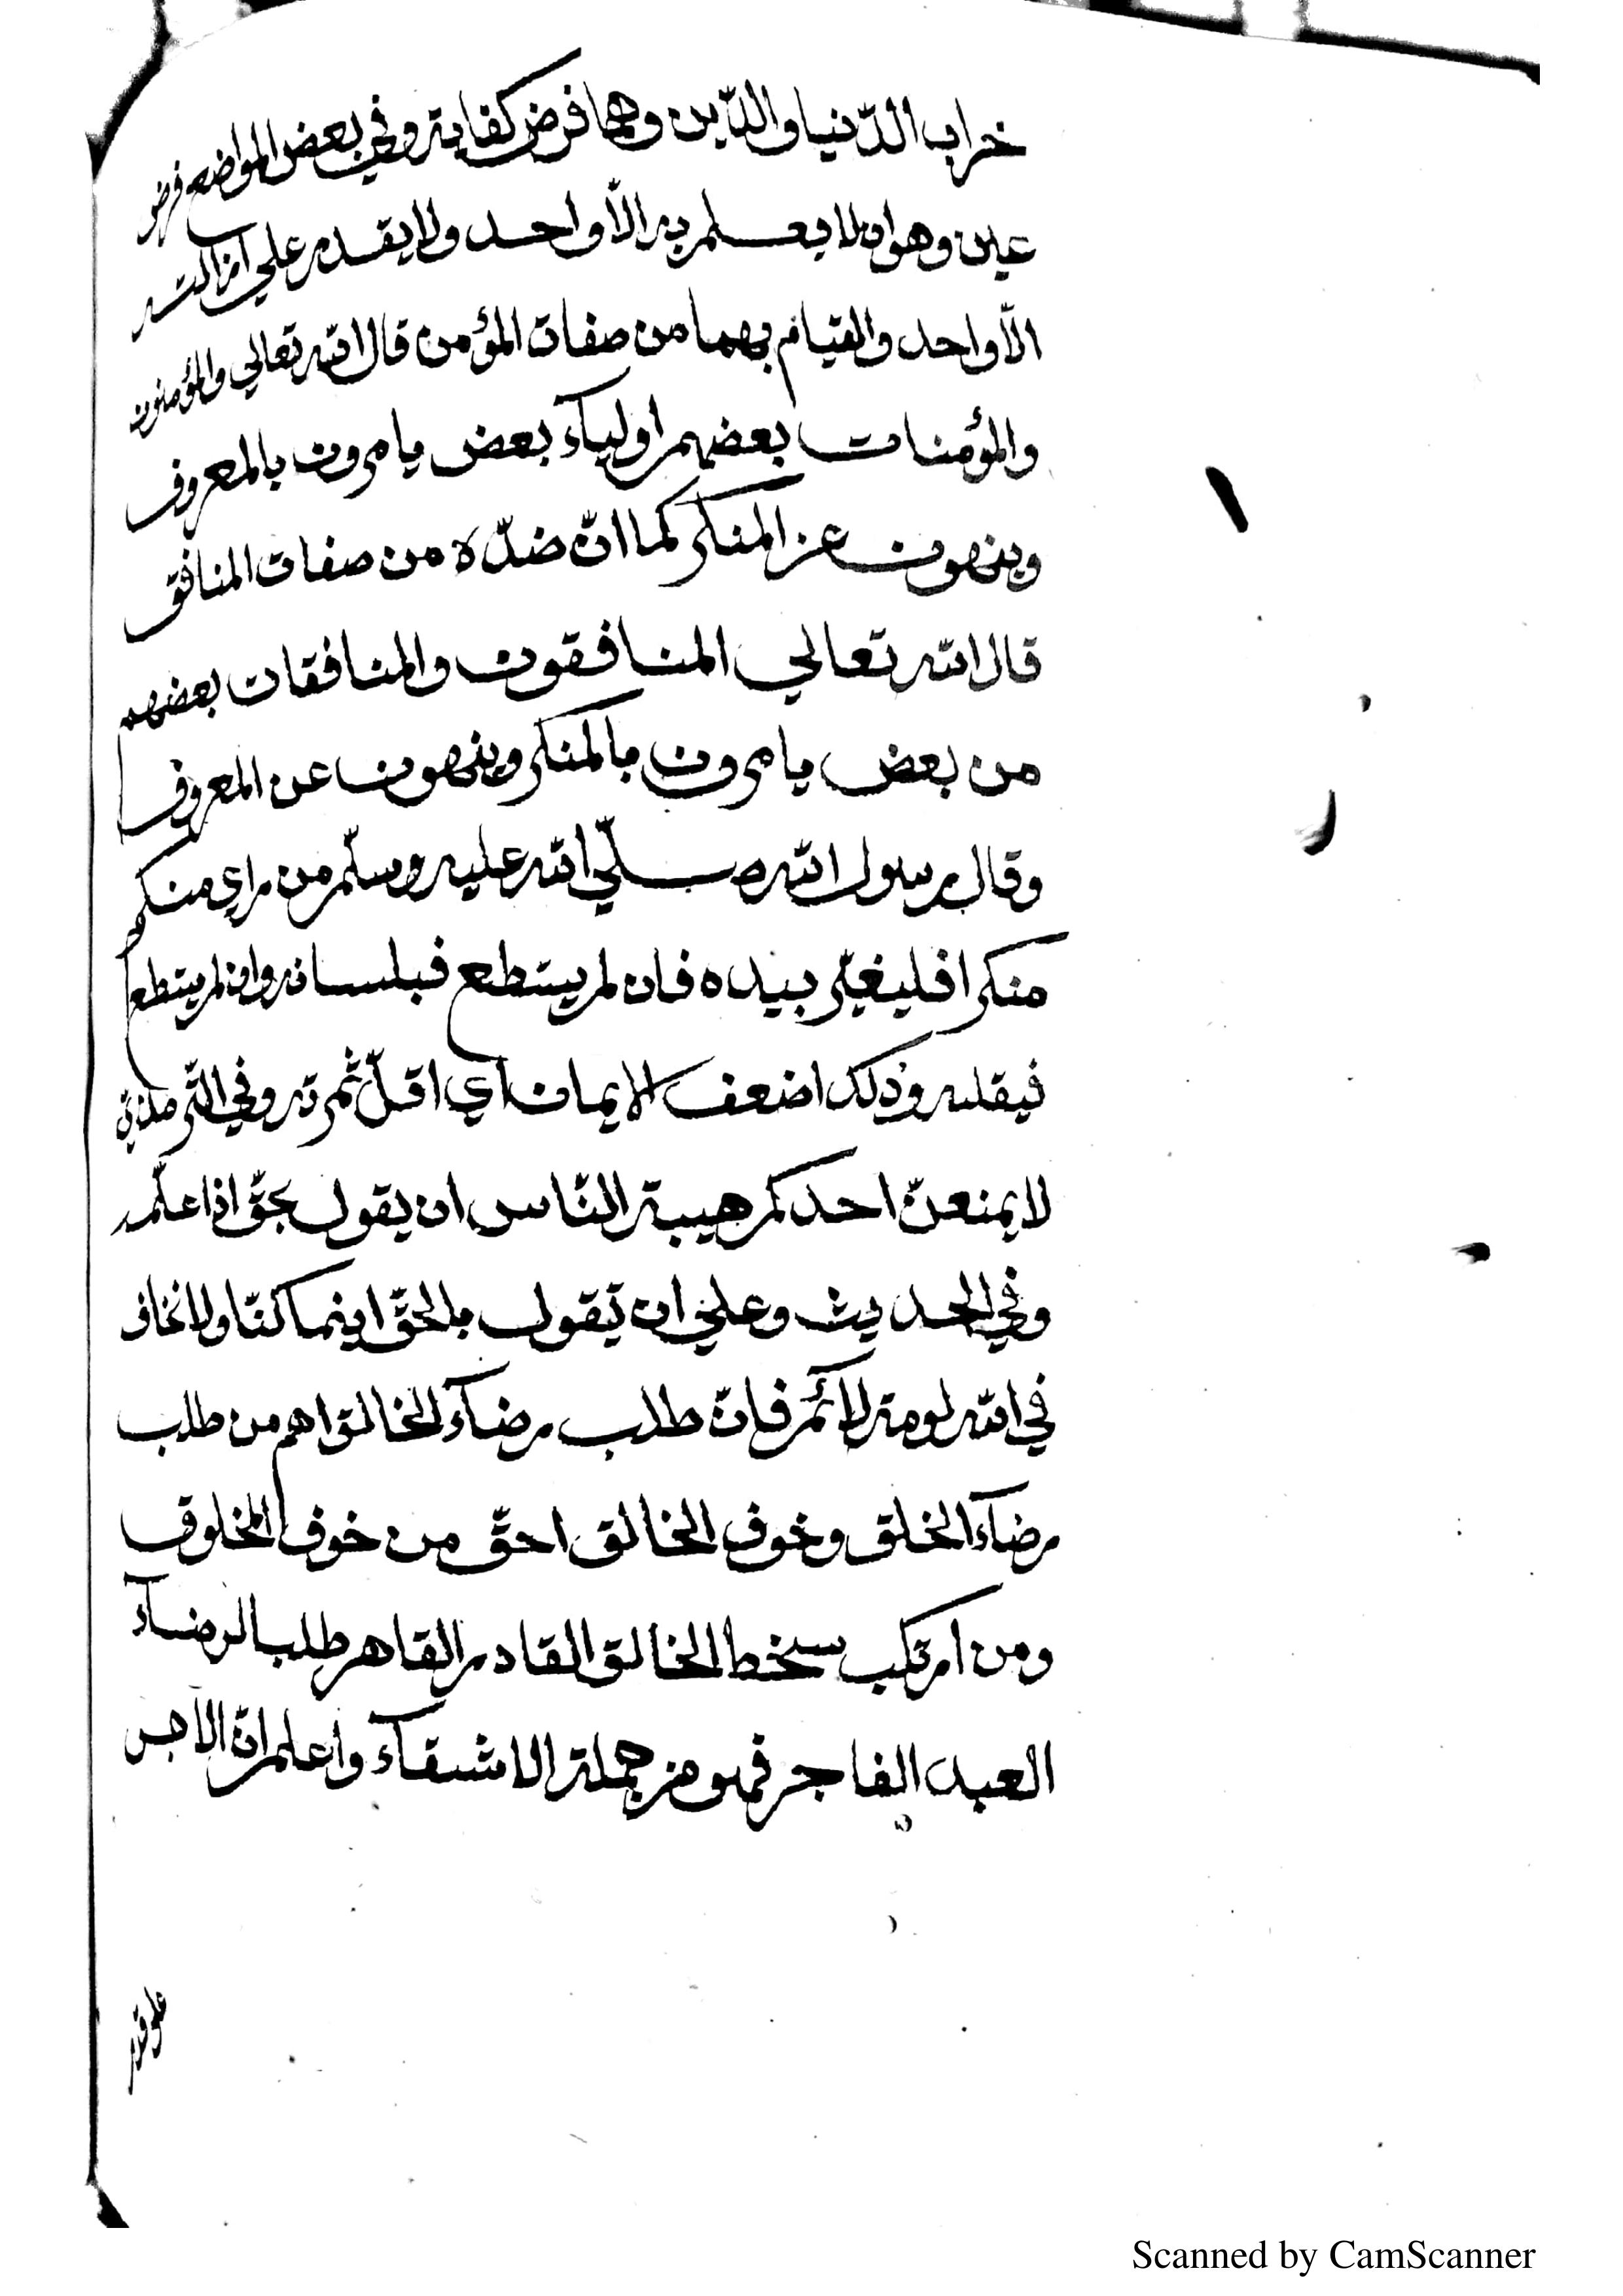 خراب الدّنيا والدّين وهما فرض كفاية وفي بعض المواضع فرض
عين وهو ان لا يعلم به الاّ واحد ولا يقدر علي ازالته
الاّ واحد والقيام بهما من صفات المؤمن قال الله تعالي والمؤمنون
والمؤمنات بعضهم اوليآء بعض يامرون بالمعروف
وينهون عن المنكر كما انّ ضدّه من صفات المنافق
قال الله تعالي المنافقون والمنافقات بعضهم
من بعض يامرون بالمنكر وينهون عن المعروف
وقال رسول الله صلّي الله عليه وسلّم من راي منكم
منكرا فليغيّر بيده فان لم يستطع فبلسانه وان لم يستطع
فبقلبه وذلك اضعف الايمان اي اقلّ ثمرته وفي التّرمذي
لا يمنعنّ احدكم هيبة النّاس ان يقول بحقّ اذا علمه
وفي الحديث وعلي ان تقول بالحقّ اينما كنّا ولا نخاف
في الله لومة لآئم فانّ طلب رضآء الخالق اهم من طلب
رضآء الخلق وخوف الخالق احقّ من خوف المخلوق
ومن ارتكب سخط الخالق القادر القاهر طلبا لرضآء
العبد الفاجر فهو من جملة الاشقآء واعلم انّ الاجر
Scanned by CamScanner